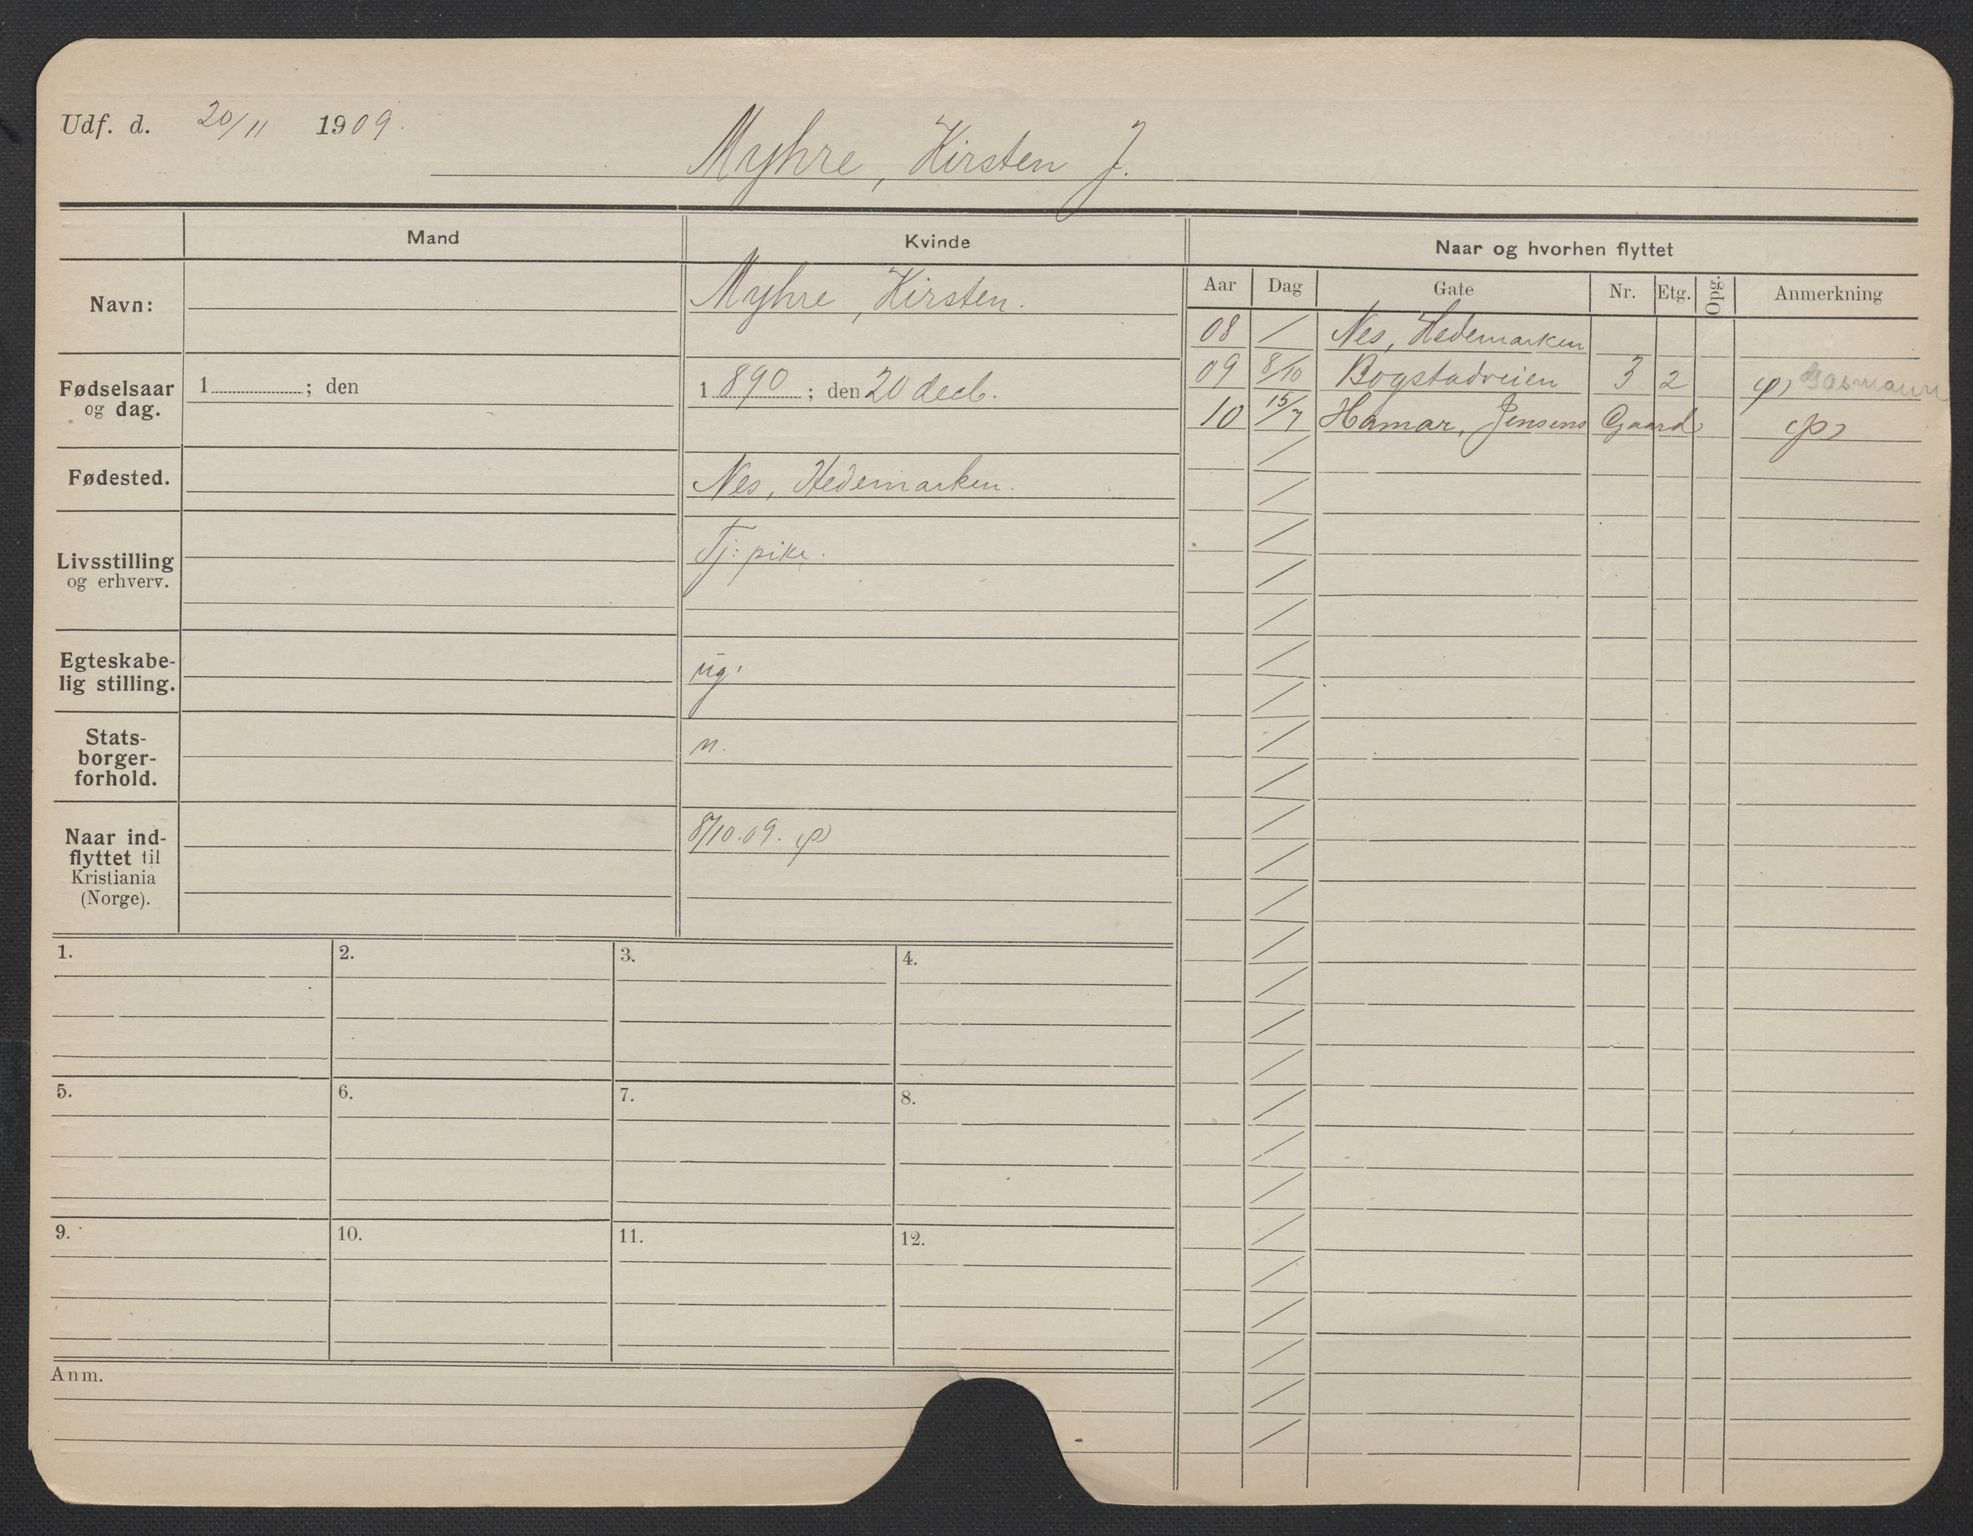 Udf. d. 20/11 1909.
Myhre, Kirsten J.
Mand
Kvinde
Naar og hvorhen flyttet
Aar Dag Gate Nr. Etg. Opg. Anmerkning
Navn:
Myhre, Kirsten.
Fødselsaar og dag.
1 ; den
1890 ; den 20 decb.
Fødested.
Nes, Hedemarken.
Livsstilling og erhverv.
Tj: pike.
Egteskabe-
lig stilling.
ug.
Stats-
borger-
forhold.
n.
Naar ind-
flyttet til
Kristiania
(Norge).
8/10.09. (p)
08 / Nes, Hedemarken
09 8/10 Bogstadveien 3 2 (p)
10 15/7 Hamar, Jensens Gaard (p)
1. 2. 3. 4.
5. 6. 7. 8.
9. 10. 11. 12.
Anm.